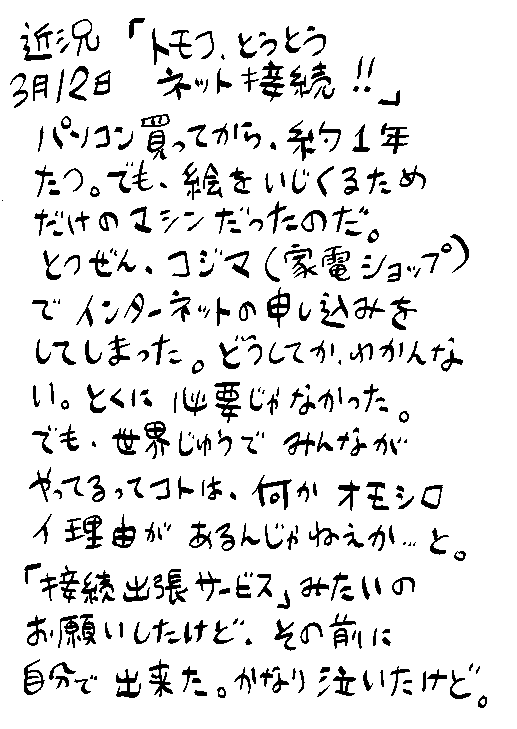 近況 「トモコ、とうとう
3月12日 ネット接続!!」
パソコン買ってから、約1年
たつ。でも、絵をいじくるため
だけのマシンだったのだ。
とつぜん、コジマ(家電ショップ)
でインターネットの申し込みを
してしまった。どうしてか、わかんな
い。とくに必要じゃなかった。
でも、世界じゅうでみんなが
やってるってコトは、何かオモシロ
イ理由があるんじゃねえか…と。
「接続出張サービス」みたいの
お願いしたけど、その前に
自分で出来た。かなり泣いたけど。